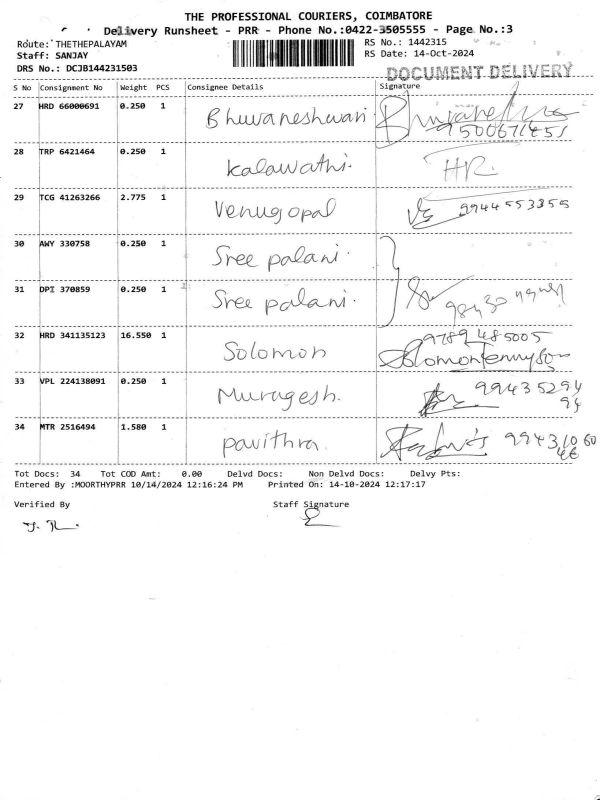 THE PROFESSIONAL COURIERS, COIMBATORE
Delivery Runsheet - PRR - Phone No.:0422-3505555 - Page No.:3
Route: THETHEPALAYAM RS No.: 1442315
Staff: SANJAY RS Date: 14-Oct-2024
DRS No.: DCJB144231503 DOCUMENT DELIVERY
S No Consignment No Weight PCS Consignee Details Signature
27 HRD 66000691 0.250 1 Bhuvaneshwari
9500671451
28 TRP 6421464 0.250 1 Kalawathi. HR.
29 TCG 41263266 2.775 1 Venugopal 9944553355
30 AWY 330758 0.250 1 Sree palani.
31 DPI 370859 0.250 1 Sree palani.
32 HRD 341135123 16.550 1 Solomon 9789485005
Solomontennyson
33 VPL 224138091 0.250 1 Murugesh. 99435294
94
34 MTR 2516494 1.580 1 pavithra. 99431060
46
Tot Docs: 34 Tot COD Amt: 0.00 Delvd Docs: Non Delvd Docs: Delvy Pts:
Entered By :MOORTHYPRR 10/14/2024 12:16:24 PM Printed On: 14-10-2024 12:17:17
Verified By Staff Signature